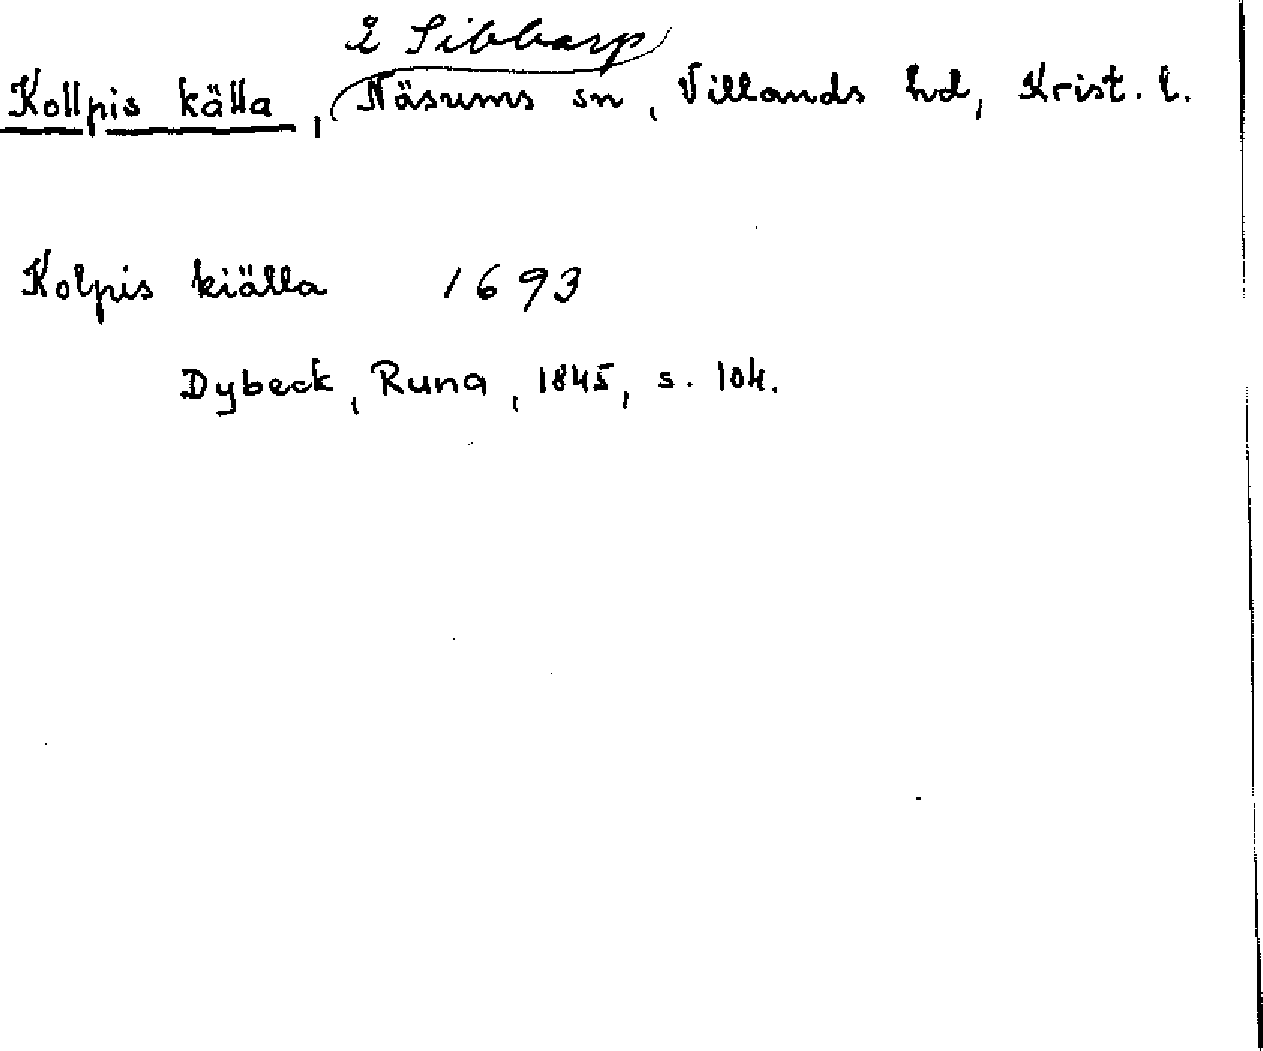 2 Sibbarp
Kollpis källa, Näsums sn, Villands hd, Krist. l.
Kolpis kiälla 1693
Dybeck, Runa, 1845, s. 104.